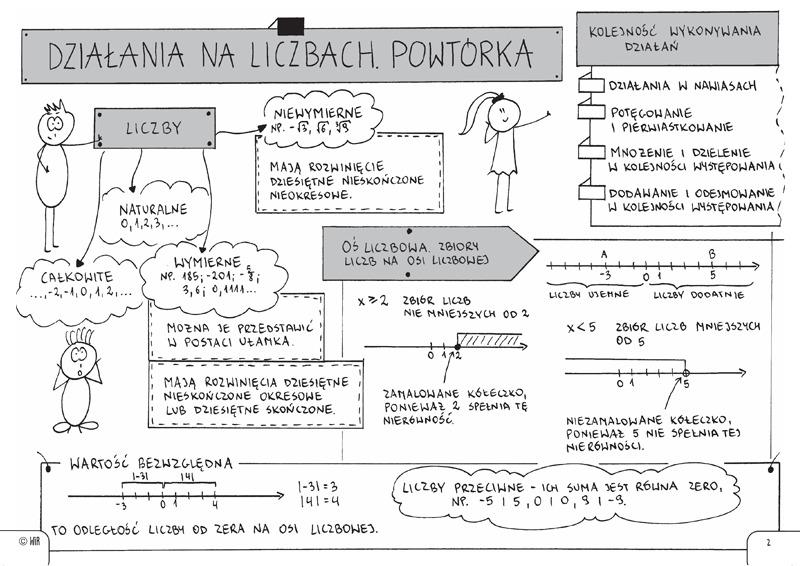 DZIAŁANIA NA LICZBACH. POWTÓRKA
KOLEJNOŚĆ WYKONYWANIA
DZIAŁAŃ
DZIAŁANIA W NAWIASACH
POTĘGOWANIE
I PIERWIASTKOWANIE
MNOŻENIE I DZIELENIE
W KOLEJNOŚCI WYSTĘPOWANIA
DODAWANIE I ODEJMOWANIE
W KOLEJNOŚCI WYSTĘPOWANIA
LICZBY
NIEWYMIERNE
NP. -√3, √6, ∛9
MAJĄ ROZWINIĘCIE
DZIESIĘTNE NIESKOŃCZONE
NIEOKRESOWE.
NATURALNE
0, 1, 2, 3, ...
CAŁKOWITE
..., -2, -1, 0, 1, 2, ...
WYMIERNE
NP. 185; -201; -5/8;
3,6; 0,1111...
MOŻNA JE PRZEDSTAWIĆ
W POSTACI UŁAMKA.
MAJĄ ROZWINIĘCIA DZIESIĘTNE
NIESKOŃCZONE OKRESOWE
LUB DZIESIĘTNE SKOŃCZONE.
OŚ LICZBOWA. ZBIORY
LICZB NA OSI LICZBOWEJ
A B
-3 0 1 5
LICZBY UJEMNE LICZBY DODATNIE
x ≥ 2 ZBIÓR LICZB
NIE MNIEJSZYCH OD 2
0 1 2
ZAMALOWANE KÓŁECZKO,
PONIEWAŻ 2 SPEŁNIA TĘ
NIERÓWNOŚĆ.
x < 5 ZBIÓR LICZB MNIEJSZYCH
OD 5
0 1 5
NIEZAMALOWANE KÓŁECZKO,
PONIEWAŻ 5 NIE SPEŁNIA TEJ
NIERÓWNOŚCI.
WARTOŚĆ BEZWZGLĘDNA
|-3| |4|
-3 0 1 4
|-3| = 3
|4| = 4
TO ODLEGŁOŚĆ LICZBY OD ZERA NA OSI LICZBOWEJ.
LICZBY PRZECIWNE - ICH SUMA JEST RÓWNA ZERO,
NP. -5 I 5, 0 I 0, 9 I -9.
© WIR
2